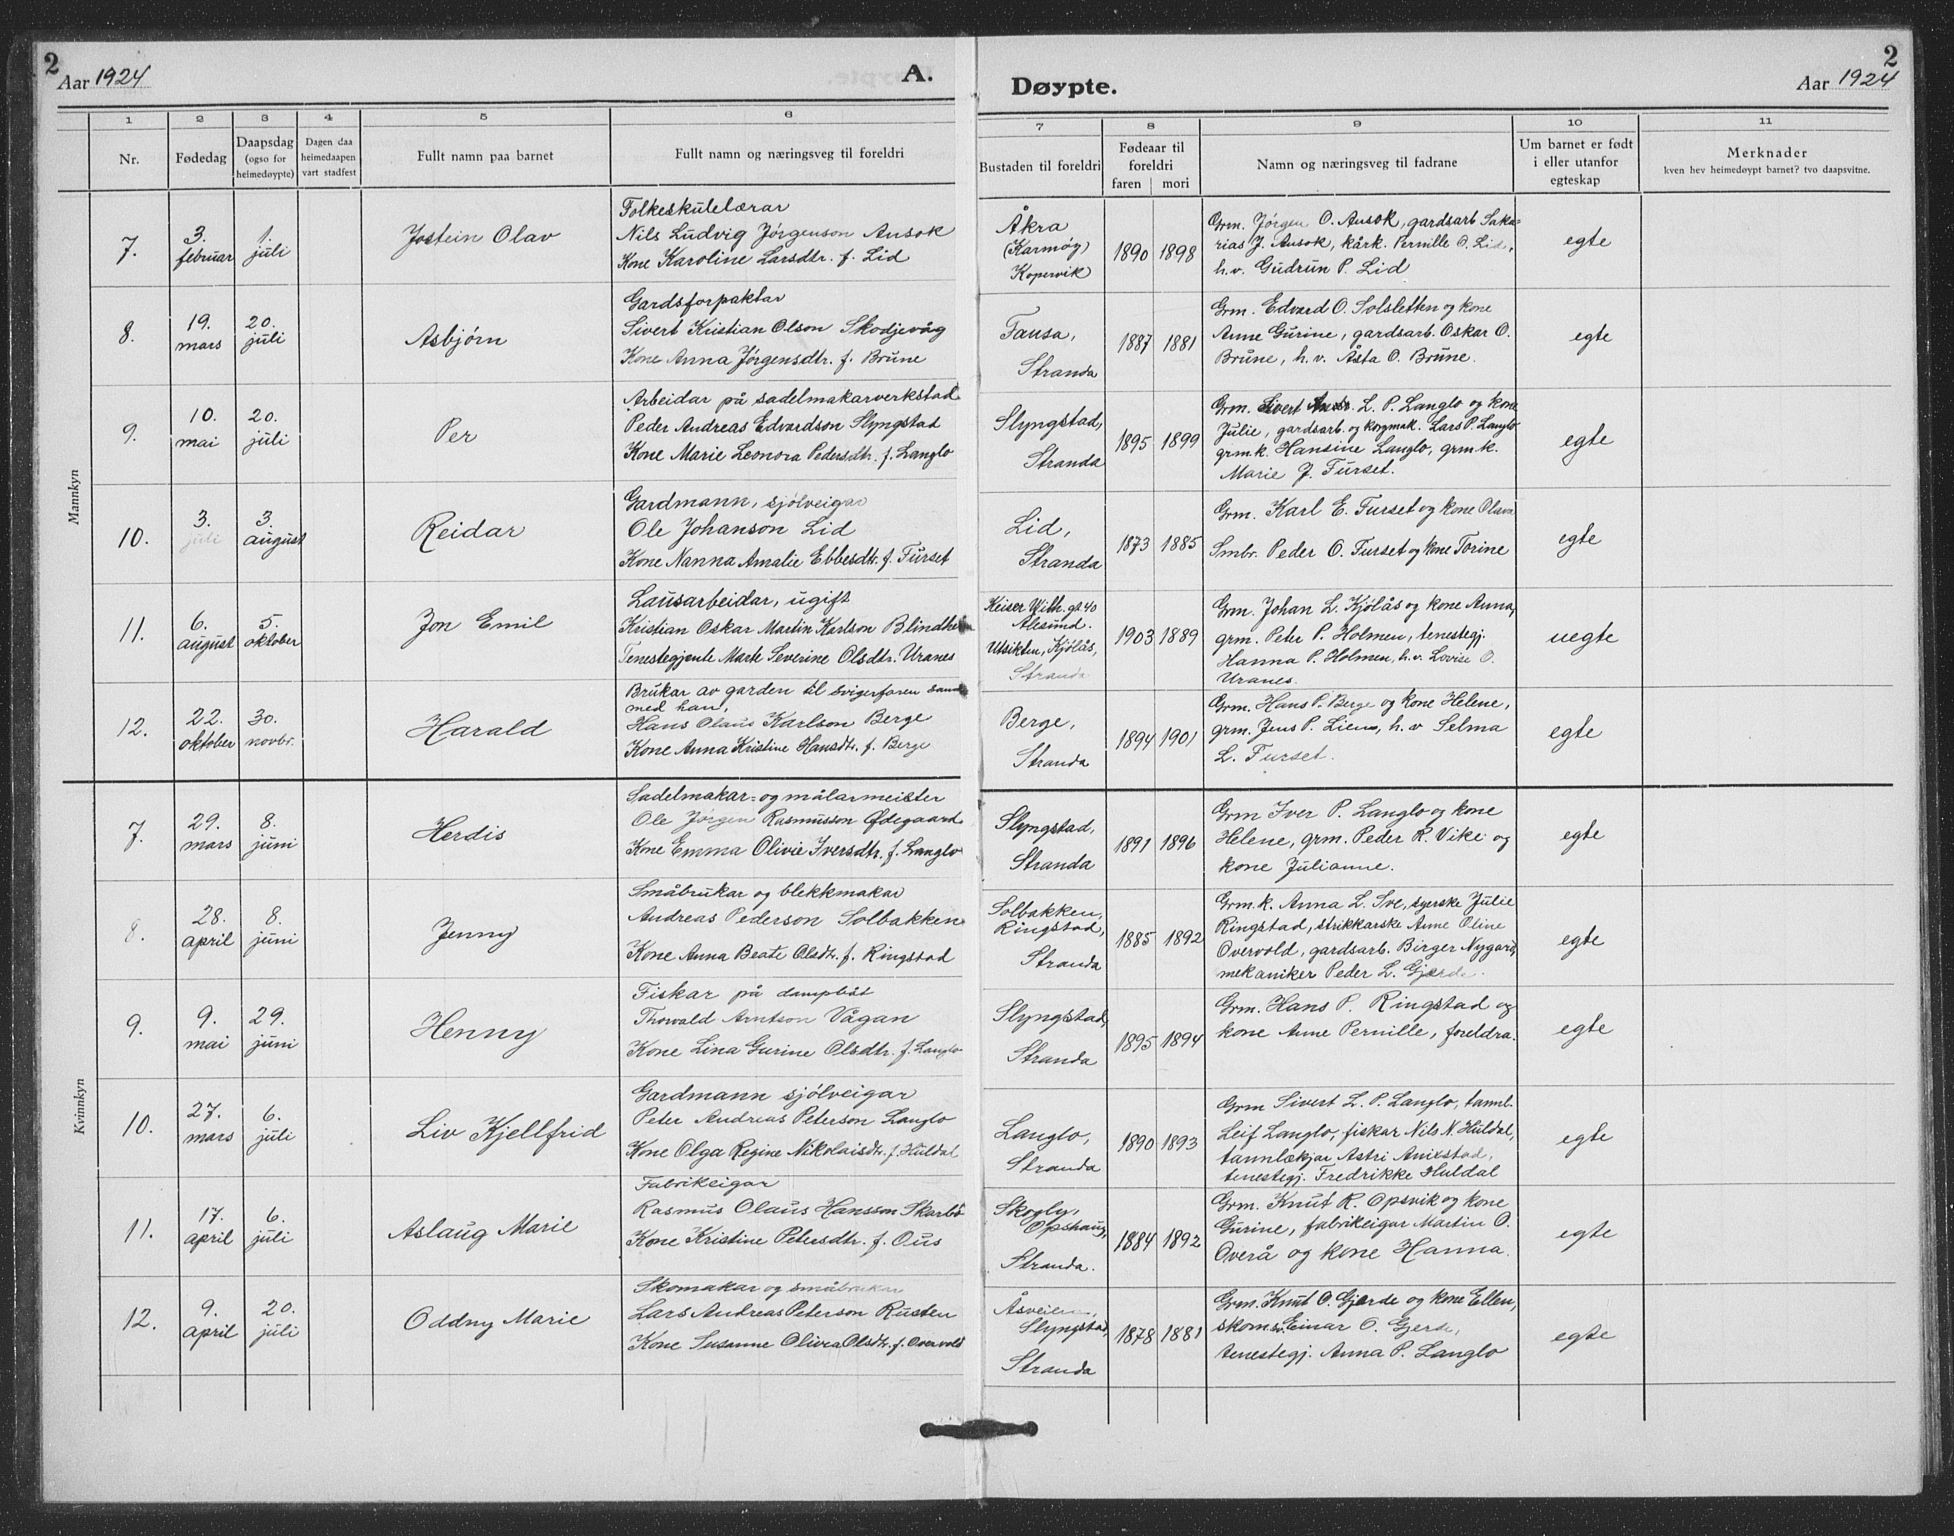 2
Aar 1924
A.
Døypte.
2
Aar 1924
1 2 3 4 5 6 7 8 9 10 11
Nr.
Fødedag
Daapsdag
(ogso for
heimedøypte)
Dagen daa
heimedaapen
vart stadfest
Fullt namn paa barnet
Fullt namn og næringsveg til foreldri
Bustaden til foreldri
Fødeaar til
foreldri
faren mori
Namn og næringsveg til fadrane
Um barnet er født
i eller utanfor
egteskap
Merknader
kven hev heimedøypt barnet? tvo daapsvitne.
Mannkyn
7.
3.
februar
1.
juli
Jostein Olav
Folkeskulelærar
Nils Ludvig Jørgenson Ansok
Kone Karoline Larsdtr. f. Lid
Åkra
(Karmøy)
Kopervik
1890 1898
Grm. Jørgen O. Ansok, gardsarb Saka-
rias J. Ansok, kårk. Pernille O. Lid,
h.v. Gudrun P. Lid
egte
8.
19.
mars
20.
juli
Asbjørn
Gardsforpaktar
Sivert Kristian Olson Skodjevåg
Kone Anna Jørgensdtr. f. Brune
Fausa,
Stranda
1887 1881
Grm. Edvard O. Solsletten og kone
Anne Gurine, gardsarb. Oskar O.
Brune, h.v. Åsta O. Brune.
egte
9.
10.
mai
20.
juli
Per
Arbeidar på sadelmakarverkstad
Peder Andreas Edvardson Slyngstad
Kone Marie Leonora Pedersdtr. f. Langlo
Slyngstad,
Stranda
1895 1899
Grm. Sivert L. P. Langlo og kone
Julie, gardsarb. og korgmak. Lars P. Langlo
grm.k. Hansine Langlo, grm.k.
Marie J. Furset.
egte
10.
3.
juli
3.
august
Reidar
Gardmann, sjølveigar
Ole Johanson Lid
Kone Nanna Amalie Ebbesdtr. f. Furset
Lid,
Stranda
1873 1885
Grm. Karl E. Furset og kone Olava
Smbr. Peder O. Furset og kone Torine
egte
11.
6.
august
5.
oktober
Jon Emil
Lausarbeidar, ugift
Kristian Oskar Martin Karlson Blindheim
Tenestegjente Marte Severine Olsdtr. Uranes
Keiser Wilh. gt 40
Ålesund.
Utsikten, Kjølås,
Stranda
1903 1889
Grm. Johan L. Kjølås og kone Anna,
grm. Peter P. Holmen, tenestegj.
Hanna P. Holmen, h.v. Lovise O.
Uranes.
uegte
12.
22.
oktober
30.
novbr.
Harald
Brukar av garden til svigerfaren saman
med han,
Hans Olaus Karlson Berge
Kone Anna Kristine Hansdtr. f. Berge
Berge,
Stranda
1894 1901
Grm. Hans P. Berge og kone Helene,
grm. Jens P. Liens, h.v Selma
L. Furset.
egte
Kvinnkyn
7.
29.
mars
8.
juni
Herdis
Sadelmakar- og målarmeister
Ole Jørgen Rasmusson Ødegaard
Kone Emma Olivie Iversdtr. f. Langlo
Slyngstad,
Stranda
1891 1896
Grm Iver P. Langlo og kone
Helene, grm. Peder R. Vike og
kone Julianne.
egte
8.
28.
april
8.
juni
Jenny
Småbrukar og blekkmakar
Andreas Pederson Solbakken
Kone Anna Beate Olsdtr. f. Ringstad
Solbakken,
Ringstad,
Stranda
1885 1892
Grm.k. Anna L. Sve, syerske Julie
Ringstad, strikkarske Anne Oline
Overvold, gardsarb. Birger Nygard,
mekaniker Peder L. Gjerde.
egte
9.
9.
mai
29.
juni
Henny
Fiskar på dampbåt
Thorvald Arntson Vågan
Kone Lina Gurine Olsdtr. f. Langlo
Slyngstad,
Stranda
1895 1894
Grm. Hans P. Ringstad og
kone Anne Pernille, foreldra.
egte
10.
27.
mars
6.
juli
Liv Kjellfrid
Gardmann sjølveigar
Peter Andreas Peterson Langlo
Kone Olga Regine Nikolaisdtr. f. Huldal
Langlo,
Stranda
1890 1893
Grm Sivert L. P. Langlo, tannl.
Leif Langlo, fiskar Nils N. Huldal,
tannlækjar Astri
tenestegj. Fredrikke Huldal
egte
11.
17.
april
6.
juli
Aslaug Marie
Fabrikeigar
Rasmus Olaus Hansson Skarbø
Kone Kristine Petersdtr. f. Ous
Skogly,
Opshaug,
Stranda.
1884 1892
Grm. Knut R. Opsvik og kone
Gurine, fabrikeigar Martin O.
Overå og kone Hanna.
egte
12.
9.
april
20.
juli
Oddny Marie
Skomakar og småbrukar
Lars Andreas Peterson Rusten
Kone Susanne Olivia Olsdtr. f. Overvold
Åsveien,
Slyngstad,
Stranda
1878 1881
Grm. Knut O. Gjerde og kone Ellen,
skomsv. Einar O. Gjerde,
tenestegj. Anna P. Langlo
egte